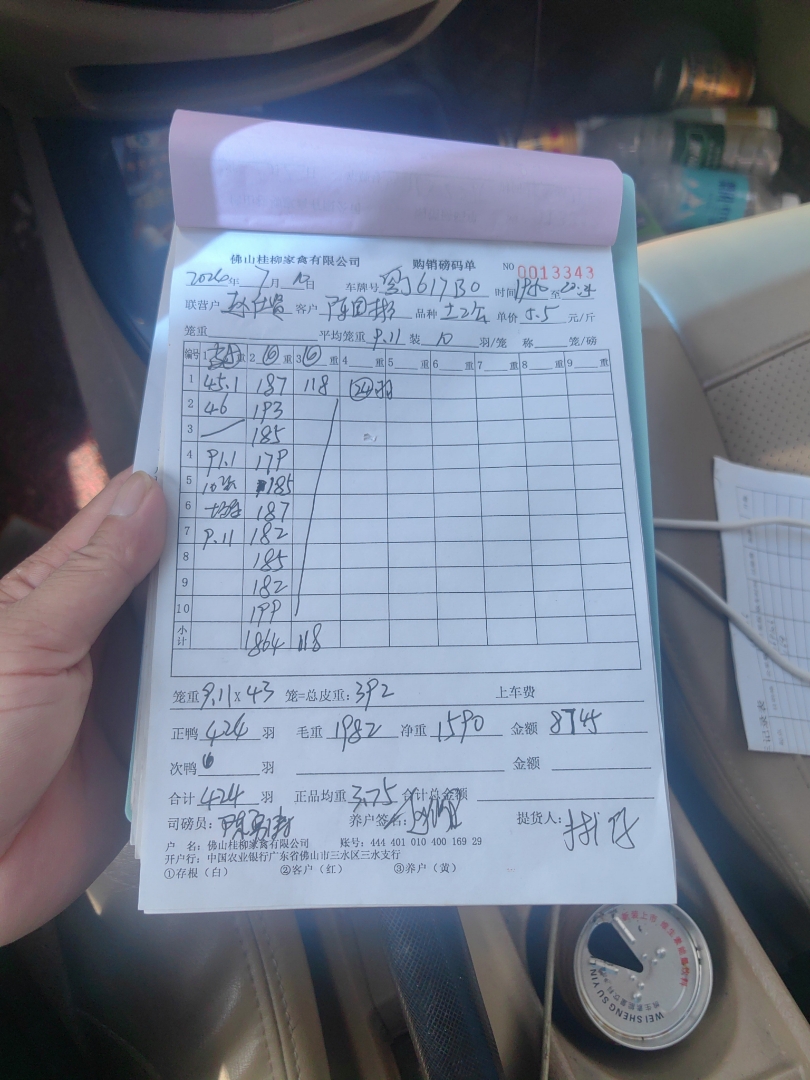 佛山桂柳家禽有限公司 购销磅码单 NO 0013343
2026年7月 日 车牌号 617B0 时间1950至
联营户 客户 品种 单价5.5元/斤
笼重 平均笼重9.11装10羽/笼 称 笼/磅
编号 1 重 2 ⑥ 重 3 ⑥ 重 4 重 5 重 6 重 7 重 8 重 9 重
1 45.1 187 118 四羽
2 46 193
3 185
4 91.1 179
5 185
6 187
7 9.11 182
8 185
9 182
10 199
小计 1864 118
笼重9.11×43笼=总皮重:392 上车费
正鸭424羽 毛重1982净重1590金额8745
次鸭 羽 金额
合计424羽 正品均重3.75合计总金额
司磅员: 养户签名: 提货人:
户 名:佛山桂柳家禽有限公司 账号:444 401 010 400 169 29
开户行:中国农业银行广东省佛山市三水区三水支行
①存根(白) ②客户(红) ③养户(黄)
WEI SHENG SU YIN